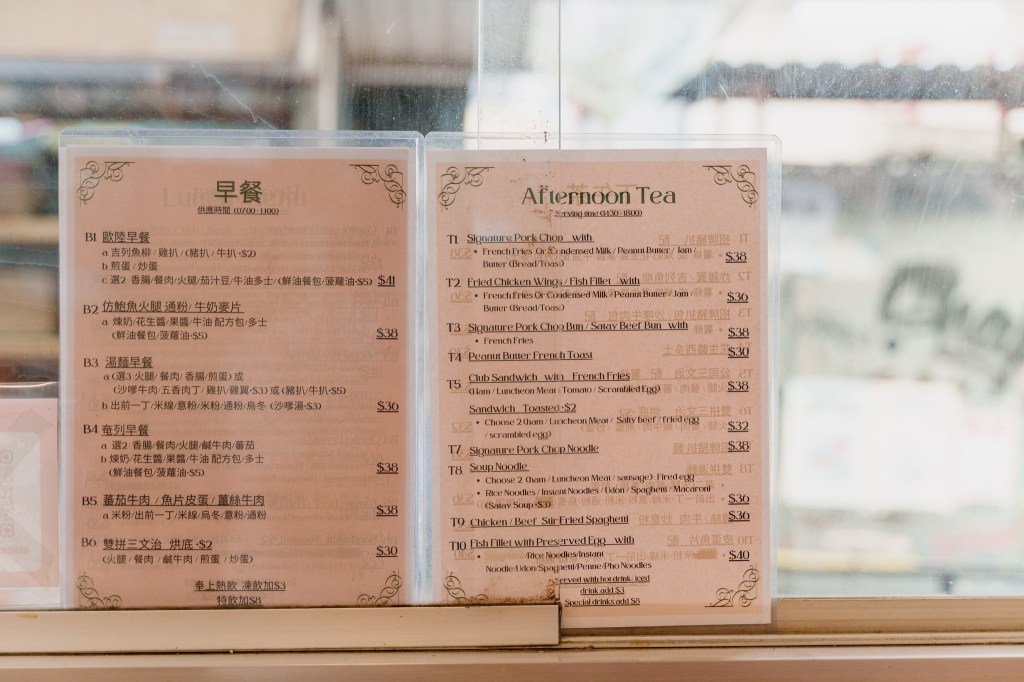 早餐
供應時間 (07:00-11:00)
B1 歐陸早餐
a. 吉列魚柳 / 雞扒 / (豬扒 / 牛扒 +$2)
b. 煎蛋 / 炒蛋
c. 選2: 香腸/餐肉/火腿/茄汁豆/牛油多士/ (鮮油餐包/菠蘿油+$5) $41
B2 仿鮑魚火腿 通粉/ 牛奶麥片
a. 煉奶/花生醬/果醬/牛油 配方包/多士
(鮮油餐包/菠蘿油+$5) $38
B3 湯麵早餐
a. (選3: 火腿/ 餐肉/ 香腸/煎蛋) 或
(沙嗲牛肉/五香肉丁/ 雞扒/雞翼+$3) 或 (豬扒/牛扒+$5)
b. 出前一丁/米線/意粉/米粉/通粉/烏冬 (沙嗲湯+$3) $36
B4 奄列早餐
a. 選2: 香腸/餐肉/火腿/鹹牛肉/蕃茄
b. 煉奶/花生醬/果醬/牛油 配方包/多士
(鮮油餐包/菠蘿油+$5) $38
B5 蕃茄牛肉 / 魚片皮蛋 / 薑絲牛肉
a. 米粉/出前一丁/米線/烏冬/意粉/通粉 $38
B6 雙拼三文治 烘底 +$2
(火腿/ 餐肉 / 鹹牛肉 / 煎蛋 / 炒蛋) $30
奉上熱飲 凍飲加$3
特飲加$8
Afternoon Tea
Serving time (14:30-18:00)
T1 Signature Pork Chop with
• French Fries Or (Condensed Milk / Peanut Butter / Jam /
Butter (Bread/Toas) $38
T2 Fried Chicken Wings / Fish Fillet with
• French Fries Or Condensed Milk / Peanut Butter / Jam
Butter (Bread/Toas) $36
T3 Signature Pork Chop Bun / Satay Beef Bun with
• French Fries $38
T4 Peanut Butter French Toast $30
T5 Club Sandwich with French Fries
(Ham / Luncheon Meat / Tomato / Scrambled Egg) $38
Sandwich Toasted +$2
• Choose 2 (ham / Luncheon Meat / Salty beef / fried egg
/ scrambled egg) $32
T7 Signature Pork Chop Noodle $38
T8 Soup Noodle
• Choose 2 (ham / Luncheon Meat / sausage) Fired egg
• Rice Noodles / Instant Noodles / Udon / Spagheni / Macaroni
(Satay Soup +$3) $36
T9 Chicken / Beef Stir Fried Spagheni $36
T10 Fish Fillet with Preserved Egg with
• Rice Noodles/Instant
Noodle/Udon/Spagheni/Penne/Pho Noodles $40
Served with hot drink, iced
drink add $3
Special drinks add $8